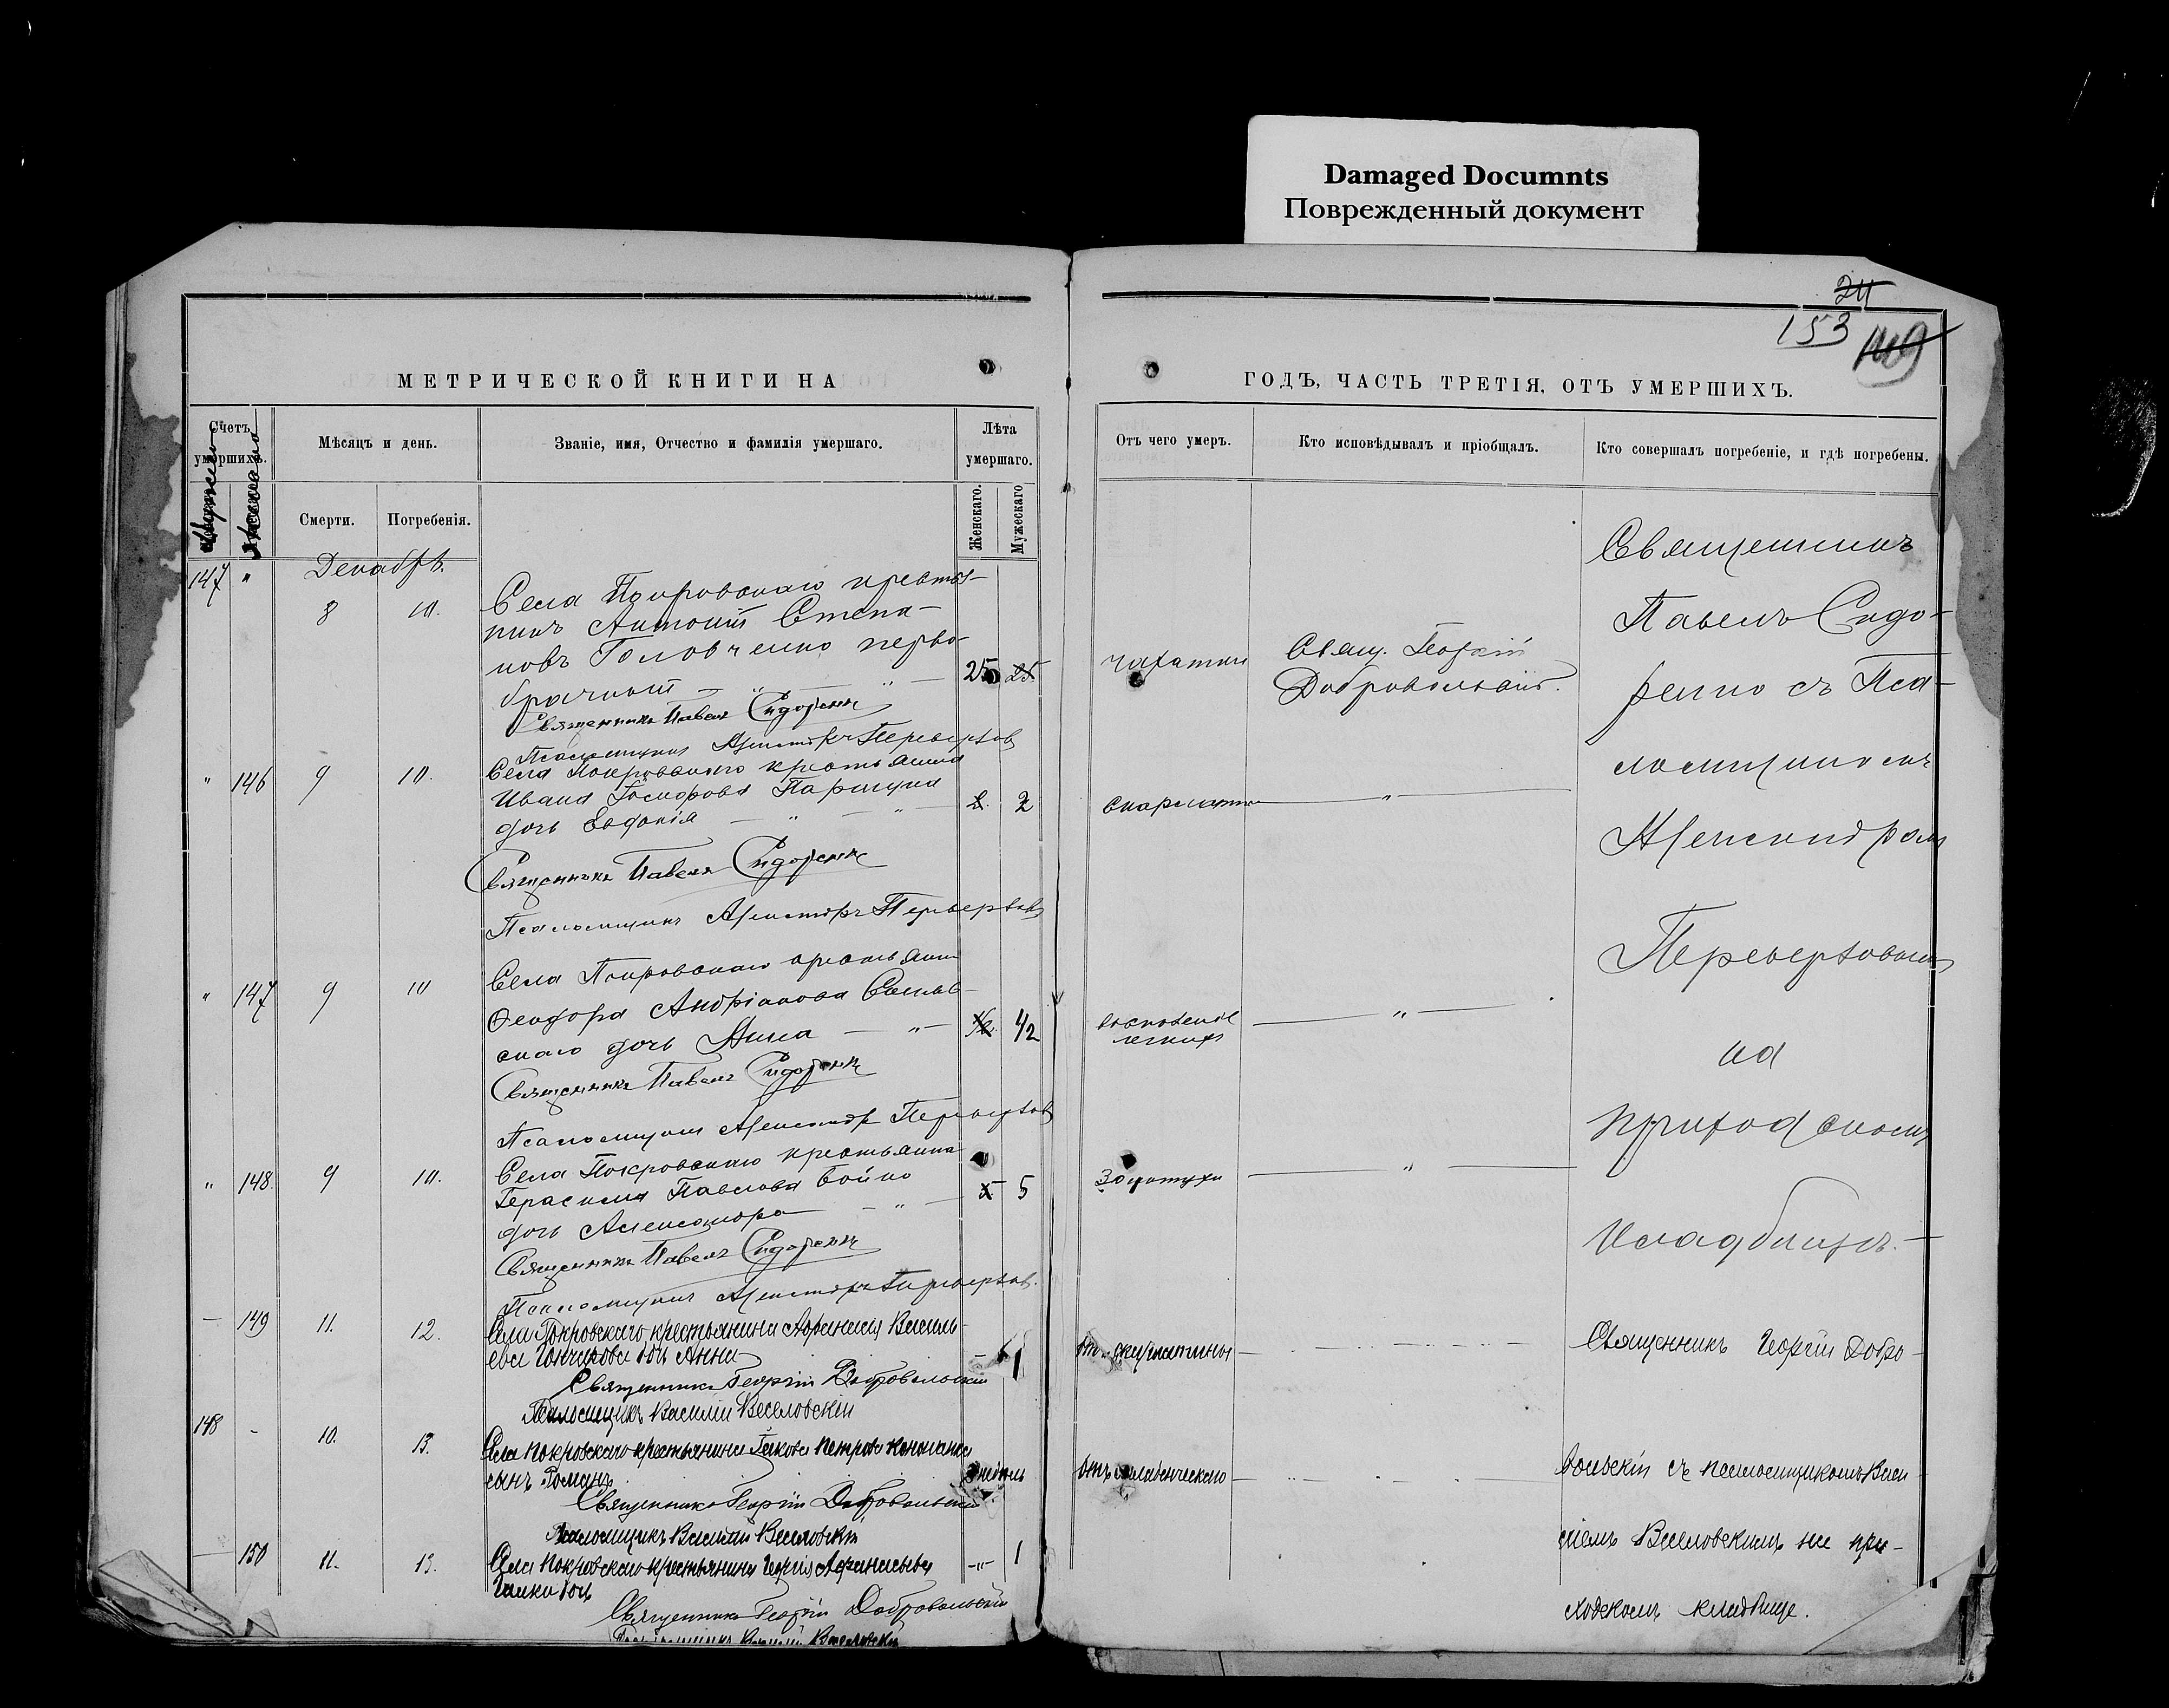 Damaged Documnts
Поврежденный документ
24
153
149
МЕТРИЧЕСКОЙ КНИГИ НА
ГОДЪ, ЧАСТЬ ТРЕТІЯ, ОТЪ УМЕРШИХЪ.
Счетъ умершихъ.
Мѣсяцъ и день.
Званіе, имя, Отчество и фамилія умершаго.
Лѣта умершаго.
Отъ чего умеръ.
Кто исповѣдывалъ и пріобщалъ.
Кто совершалъ погребеніе, и гдѣ погребены.
Смерти.
Погребенія.
Женскаго.
Мужескаго
Декабрь.
147 "
8 10.
Села Покровскаго крестья-
нинъ Антоній Степа-
новъ Головченко перво-
брачный — " — " —
25 25
чахотки
Свящ. Георгій
Добровольскій.
Священникъ Павелъ Сидоренко
Псаломщикъ Александръ Перевертовъ
" 146 9 10.
Села Покровскаго крестьянина
Ивана
дочь Евдокія — " — "
2. 2
скарлатины
"
Священникъ Павелъ Сидоренко
Псаломщикъ Александръ Перевертовъ
" 147 9 10
Села Покровскаго крестьянина
Феодора Андріанова
скаго дочь Анна — " —
1/2 1/2
воспаленіе
легкихъ
"
Священникъ Павелъ Сидоренко
Псаломщикъ Александръ Перевертовъ
" 148. 9 10.
Села Покровскаго крестьянина
Герасима Павлова Бойко
дочь Александра — " —
5 5
Золотухи
"
Священникъ Павелъ Сидоренко
Псаломщикъ Александръ Перевертовъ
— 149 11. 12.
Села Покровскаго крестьянина Афанасія Василь-
ева Гончарова дочь Анна
1
отъ скарлатины
Священникъ Георгій Добровольскій
Псаломщикъ Василій Веселовскій
148 - 10. 13.
Села Покровскаго крестьянина Якова Петрова
сынъ Романъ
отъ младенческаго
Священникъ Георгій Добровольскій
Псаломщикъ Василій Веселовскій
— 150 11. 13.
Села Покровскаго крестьянина Георгія Афанасьева
Галки дочь
-"- 1
Священникъ Георгій Добровольскій
Псаломщикъ Василій Веселовскій
Священникъ
Павелъ Сидо-
ренко съ Пса-
ломщикомъ
Александромъ
Перевертовымъ
на
приходскомъ
кладбищѣ. —
Священникъ Георгій Добро-
вольскій съ псаломщикомъ Васи-
ліемъ Веселовскимъ на при-
ходскомъ кладбище.